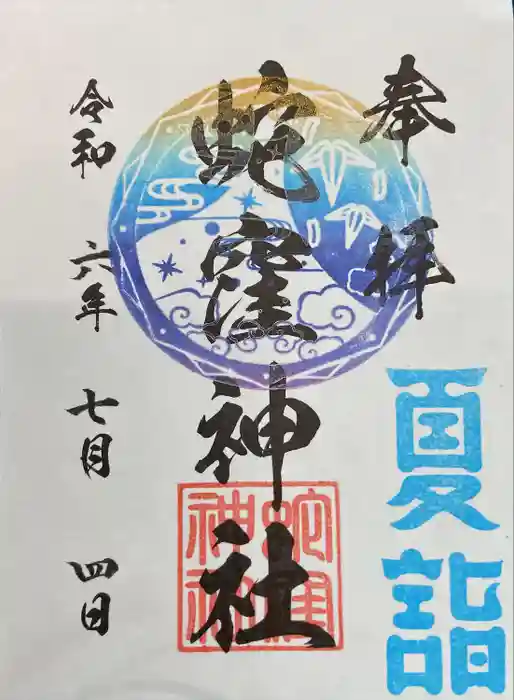 奉拝
夏詣
蛇窪神社
蛇窪神社
令和六年七月四日